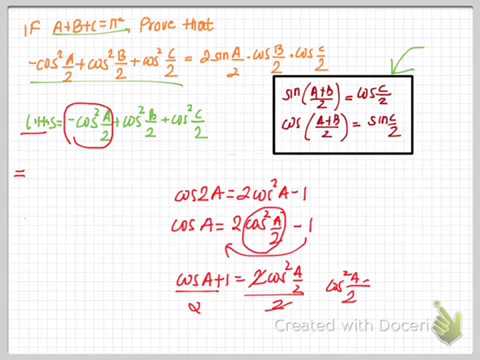 IF A+B+C=πᶜ Prove that
-cos²A/2+cos²B/2+cos²C/2=2sinA/2·cosB/2·cosC/2
sin(A+B/2)=cosC/2
cos(A+B/2)=sinC/2
LHS=-cos²A/2+cos²B/2+cos²C/2
=
cos2A=2cos²A-1
cosA=2cos²A/2-1
cosA+1/2=2cos²A/2/2 cos²A/2=
Created with Doceri